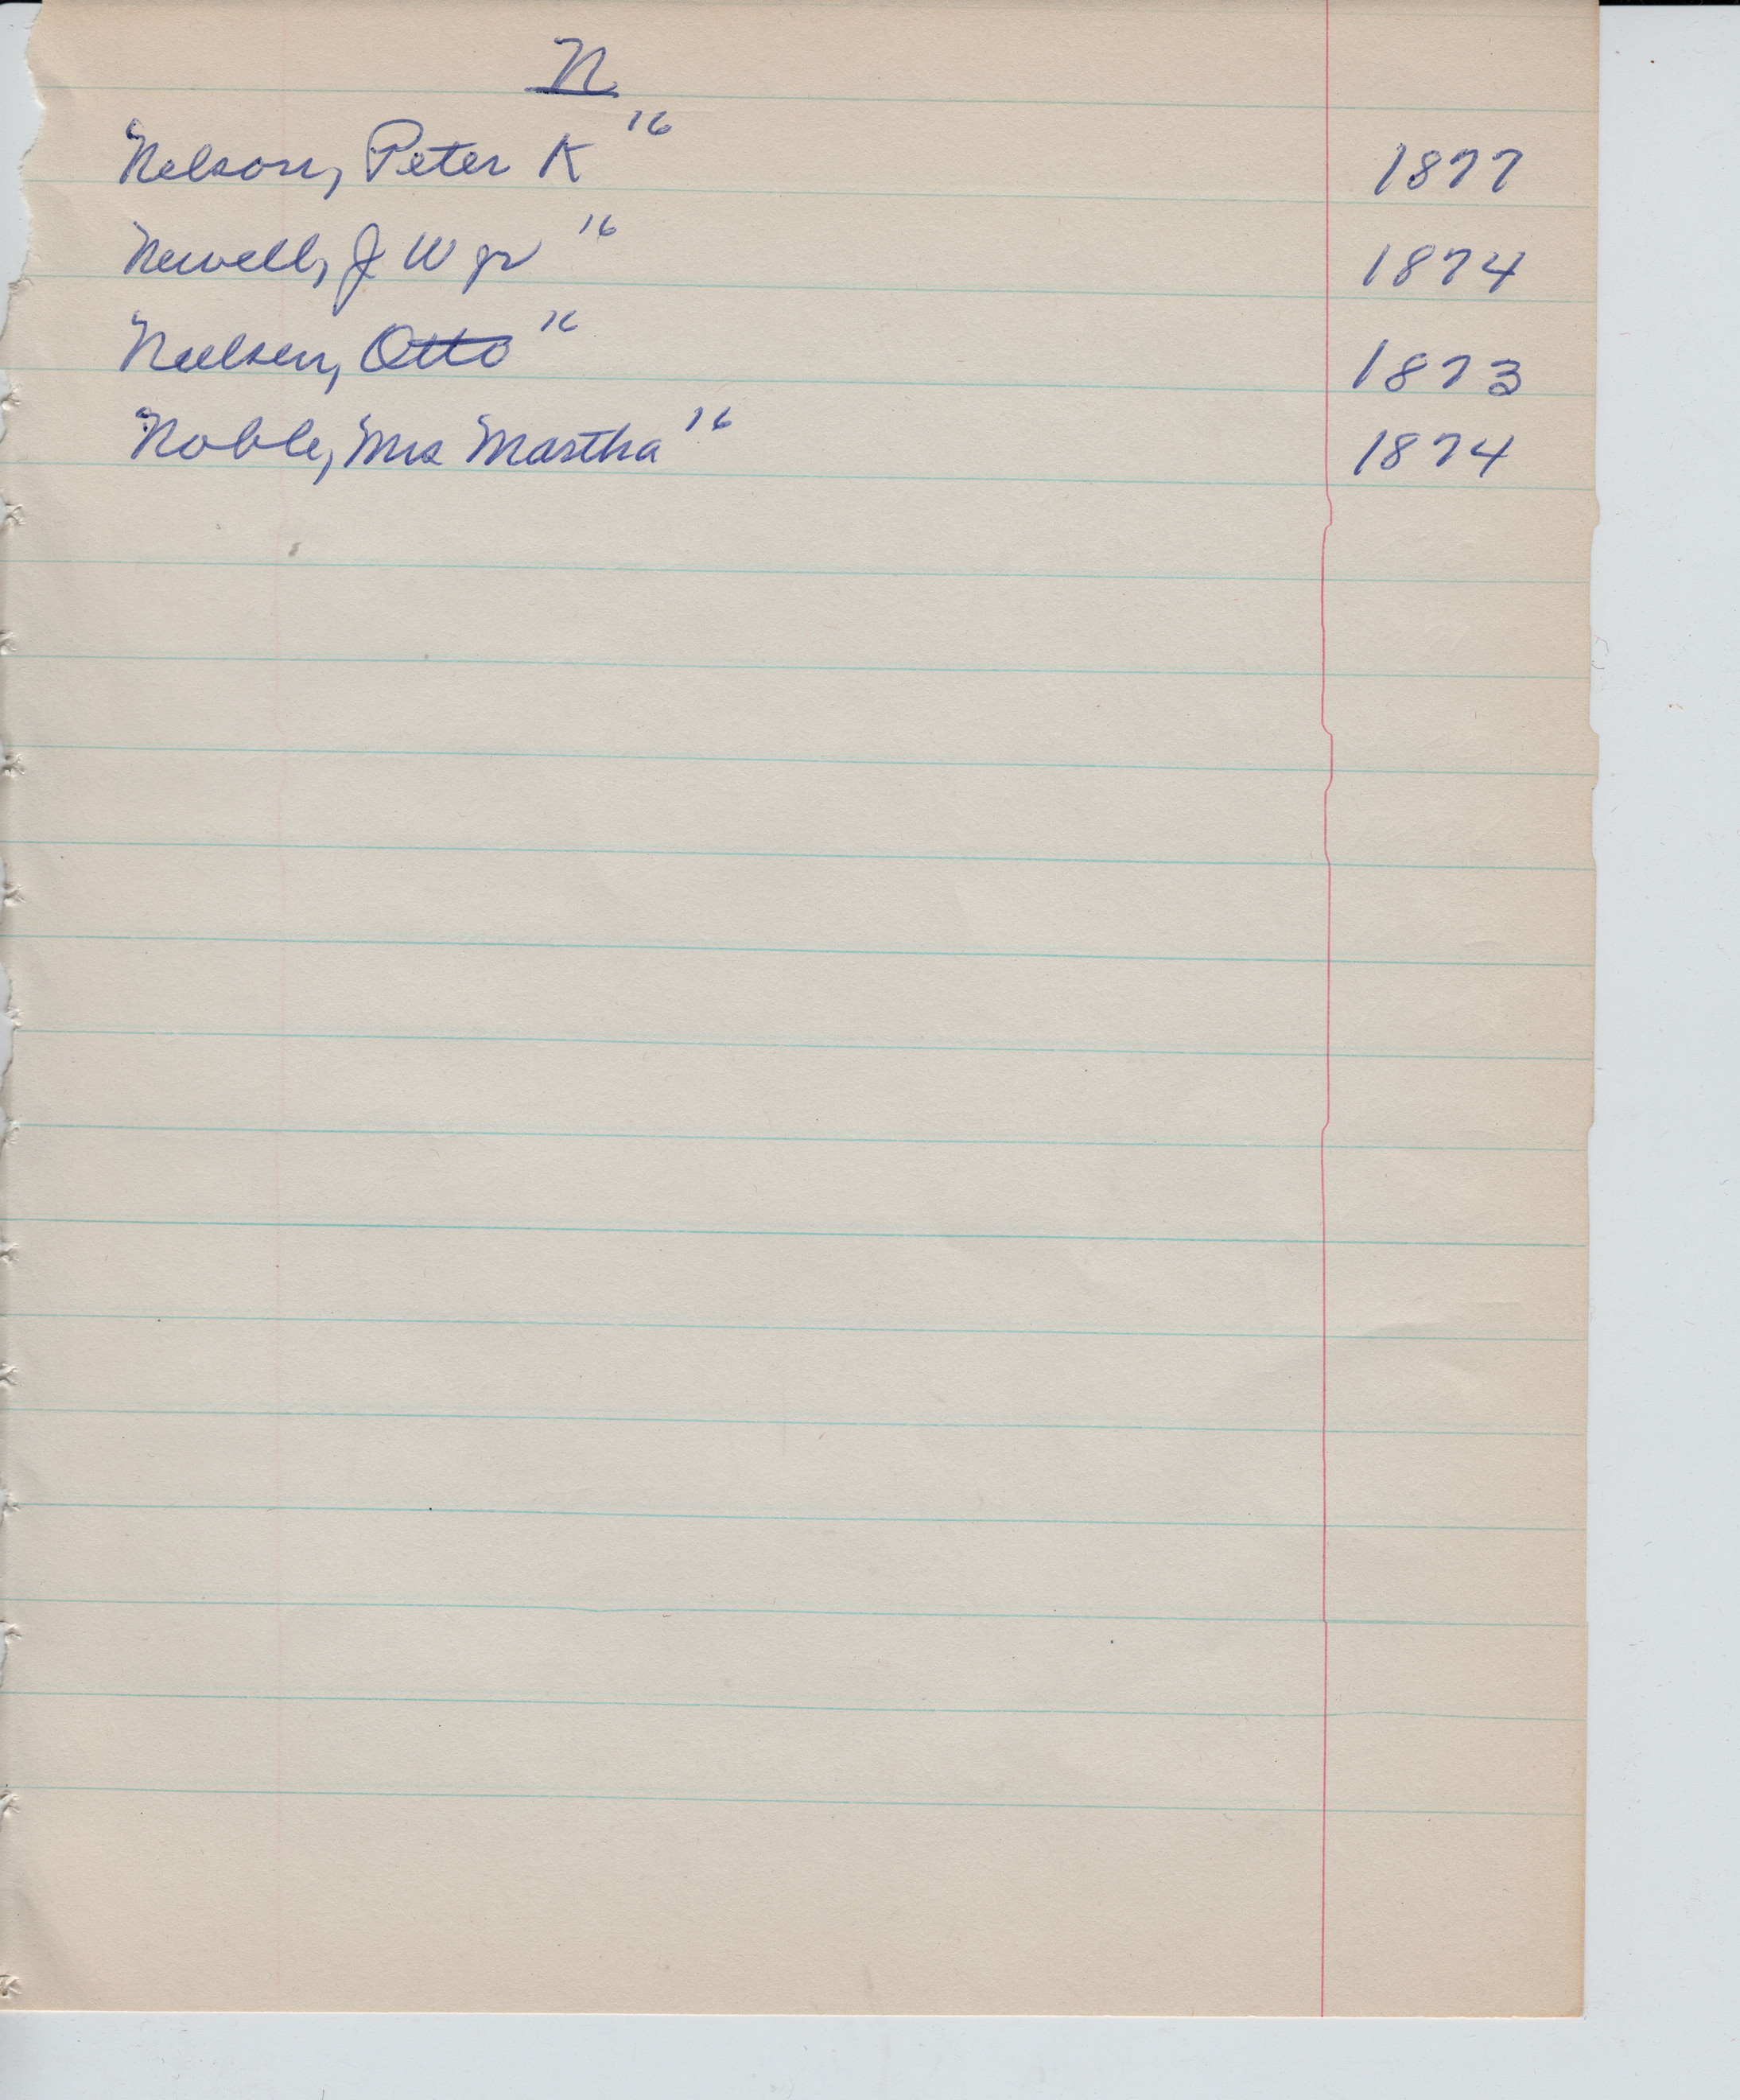 N
Nelson, Peter K 16 1877
Newell, J W jr 16 1874
Neelsen, Otto 16 1873
Noble, Mrs Martha 16 1874